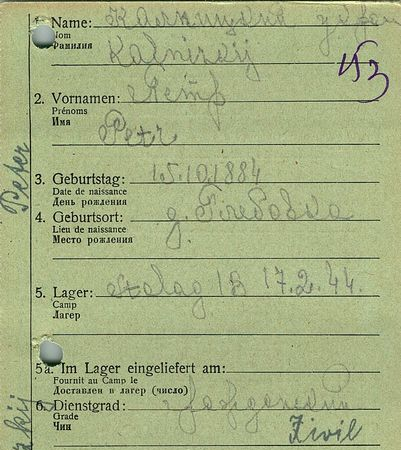 1. Name:
Nom
Фамилия
Kalnizkij
153
2. Vornamen: Петр
Prénoms
Имя
Petr
Peter
3. Geburtstag: 15.10.1884
Date de naissance
День рождения
4. Geburtsort: g.
Lieu de naissance
Место рождения
5. Lager: Stalag IB 17.2.44.
Camp
Лагер
5a. Im Lager eingeliefert am:
Fournit au Camp le
Доставлен в лагер (число)
6. Dienstgrad:
Grade
Чин
Zivil